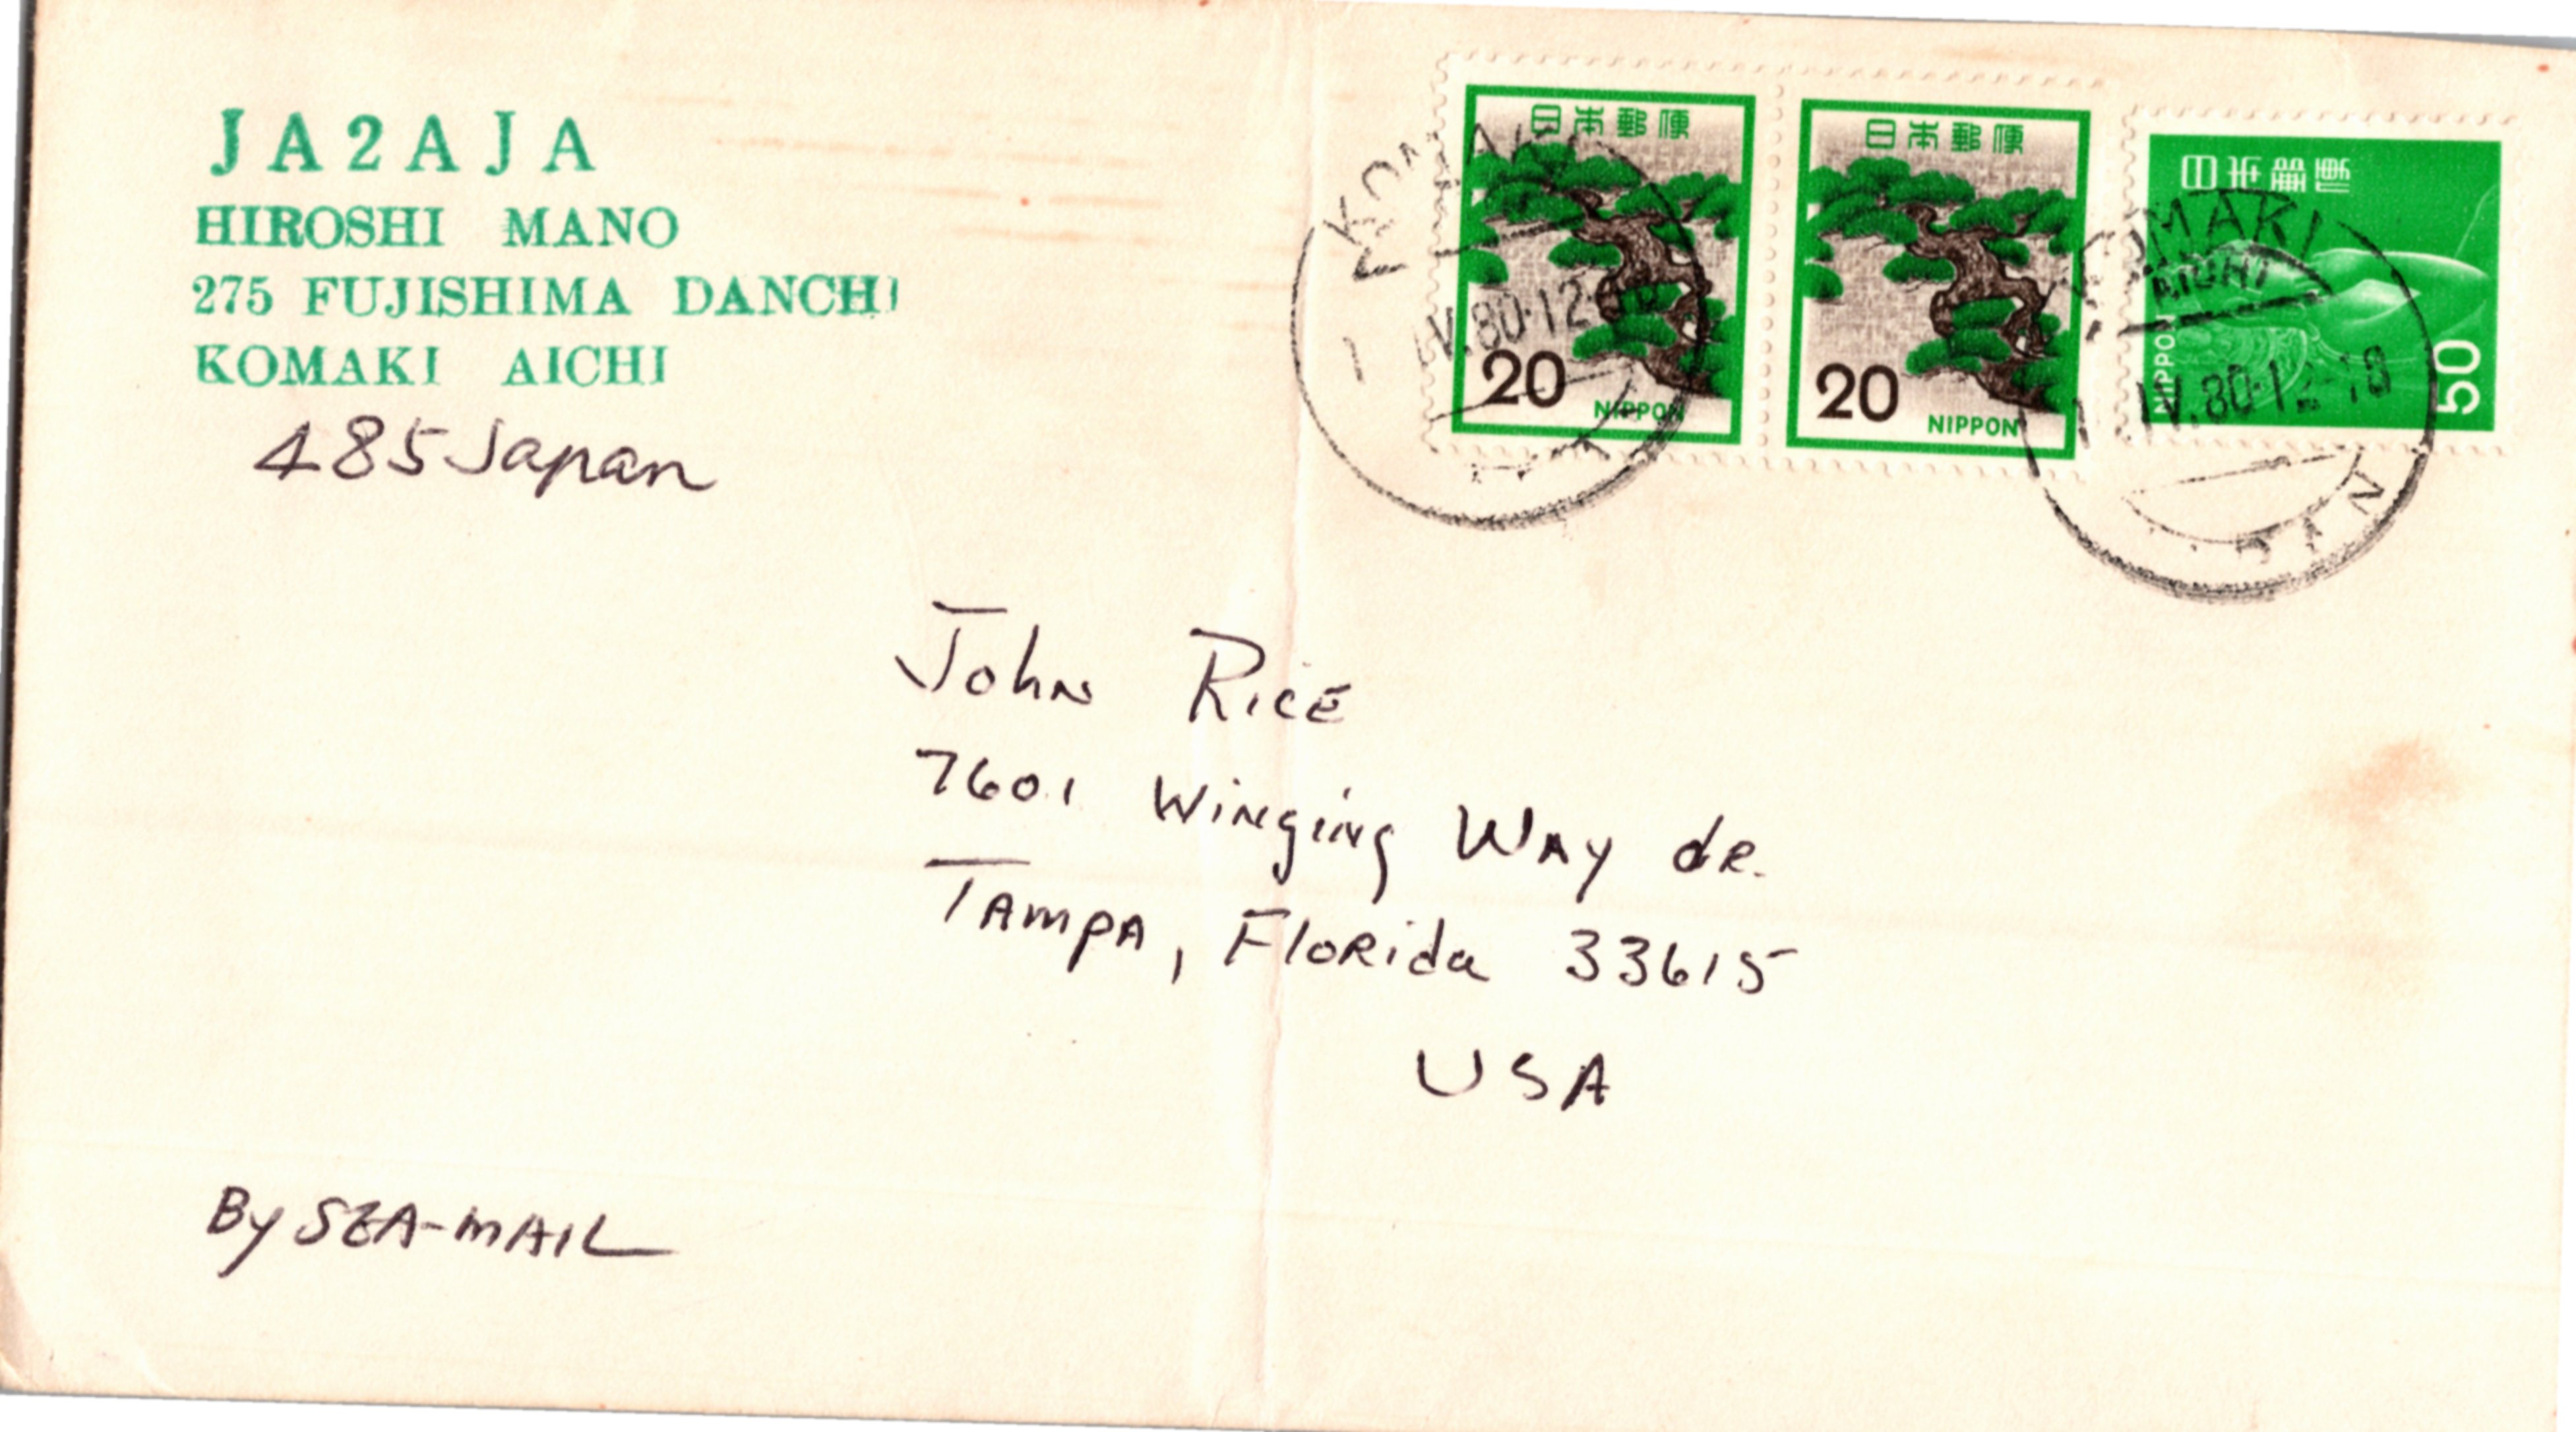 JA2AJA
HIROSHI MANO
275 FUJISHIMA DANCHI
KOMAKI AICHI
485 Japan
日本郵便
20
NIPPON
日本郵便
20
NIPPON
日本郵便
NIPPON
50
KOMAKI
IV.80.12
KOMAKI
AICHI
IV.80.12-18
John Rice
7601 Winging Way dr.
Tampa, Florida 33615
USA
By SEA-MAIL